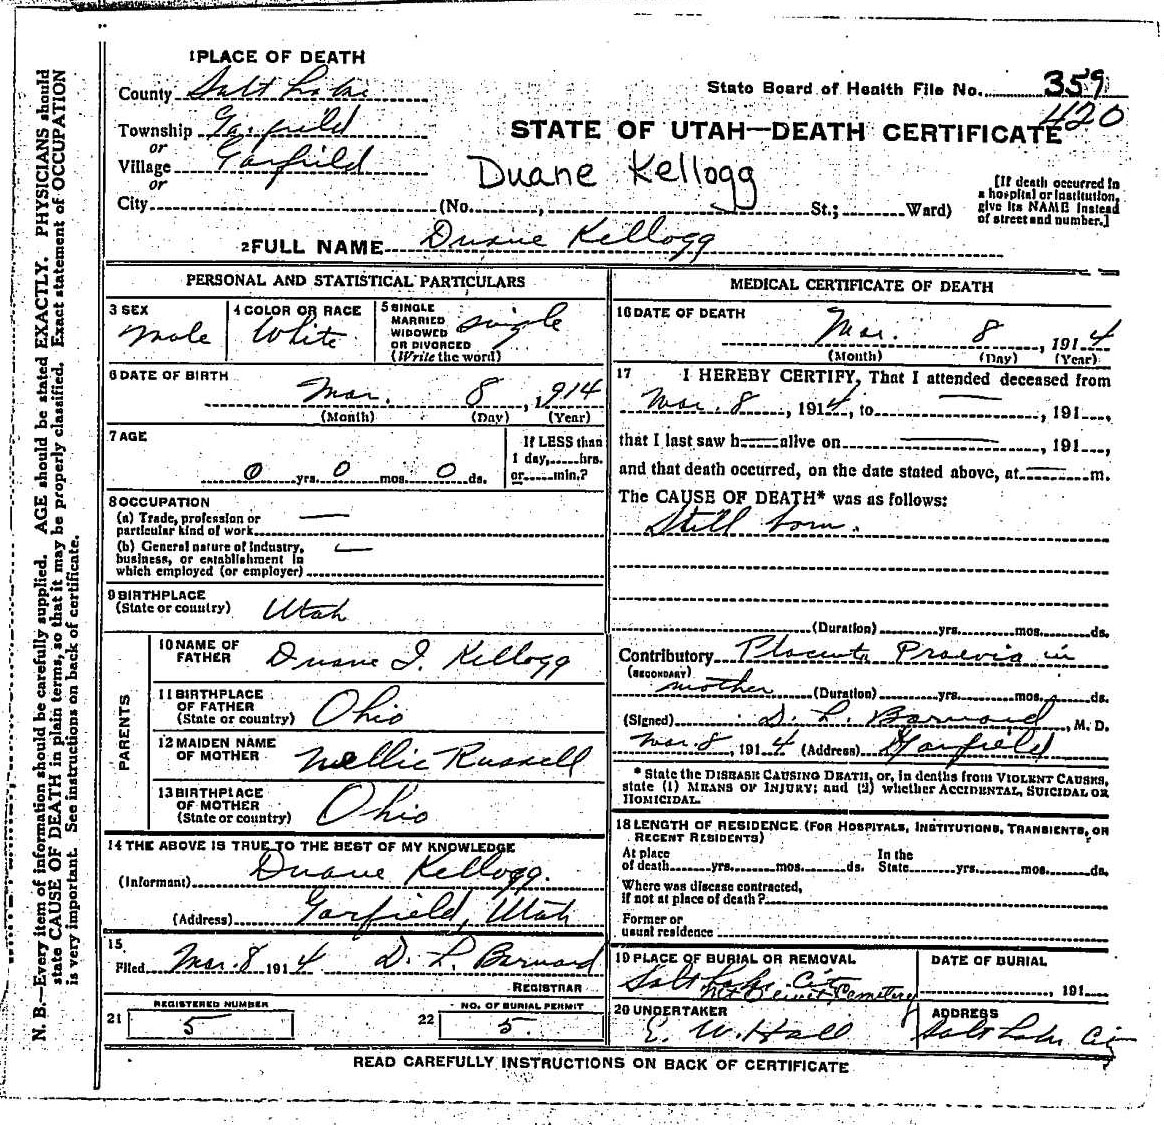 1 PLACE OF DEATH
County Salt Lake
State Board of Health File No. 359
420
Township Garfield
or
Village Garfield
or
STATE OF UTAH—DEATH CERTIFICATE
Duane Kellogg
City (No. , St.; Ward)
[If death occurred in
a hospital or institution,
give its NAME instead
of street and number.]
2 FULL NAME Duane Kellogg
PERSONAL AND STATISTICAL PARTICULARS
3 SEX
Male
4 COLOR OR RACE
White
5 SINGLE
MARRIED
WIDOWED
OR DIVORCED
(Write the word)
single
6 DATE OF BIRTH
Mar. 8, 1914
(Month) (Day) (Year)
7 AGE
0 yrs. 0 mos. 0 ds.
If LESS than
1 day, hrs.
or min.?
8 OCCUPATION
(a) Trade, profession or
particular kind of work
(b) General nature of Industry,
business, or establishment in
which employed (or employer)
9 BIRTHPLACE
(State or country) Utah
PARENTS
10 NAME OF
FATHER Duane I. Kellogg
11 BIRTHPLACE
OF FATHER
(State or country) Ohio
12 MAIDEN NAME
OF MOTHER Nellie Russell
13 BIRTHPLACE
OF MOTHER
(State or country) Ohio
14 THE ABOVE IS TRUE TO THE BEST OF MY KNOWLEDGE
(Informant) Duane Kellogg.
(Address) Garfield, Utah
15.
Filed Mar. 8 1914 D. L. Barnard
REGISTRAR
REGISTERED NUMBER
21 5
NO. OF BURIAL PERMIT
22 5.
MEDICAL CERTIFICATE OF DEATH
16 DATE OF DEATH
Mar. 8, 1914
(Month) (Day) (Year)
17 I HEREBY CERTIFY, That I attended deceased from
Mar. 8, 1914, to , 191 ,
that I last saw h alive on , 191 ,
and that death occurred, on the date stated above, at m.
The CAUSE OF DEATH* was as follows:
Still born.
(Duration) yrs. mos. ds.
Contributory Placenta Praevia in
(SECONDARY)
mother (Duration) yrs. mos. ds.
(Signed) D. L. Barnard, M. D.
Mar. 8, 1914 (Address) Garfield
* State the DISEASE CAUSING DEATH, or, in deaths from VIOLENT CAUSES,
state (1) MEANS OF INJURY; and (2) whether ACCIDENTAL, SUICIDAL OR
HOMICIDAL.
18 LENGTH OF RESIDENCE (FOR HOSPITALS, INSTITUTIONS, TRANSIENTS, OR
RECENT RESIDENTS)
At place
of death yrs. mos. ds.
In the
State yrs. mos. ds.
Where was disease contracted,
if not at place of death?
Former or
usual residence
19 PLACE OF BURIAL OR REMOVAL
Salt Lake City
Mt Olivet Cemetery
DATE OF BURIAL
, 191
20 UNDERTAKER
E. W. Hall
ADDRESS
Salt Lake City
READ CAREFULLY INSTRUCTIONS ON BACK OF CERTIFICATE
N. B.—Every item of information should be carefully supplied. AGE should be stated EXACTLY. PHYSICIANS should
state CAUSE OF DEATH in plain terms, so that it may be properly classified. Exact statement of OCCUPATION
is very important. See instructions on back of certificate.